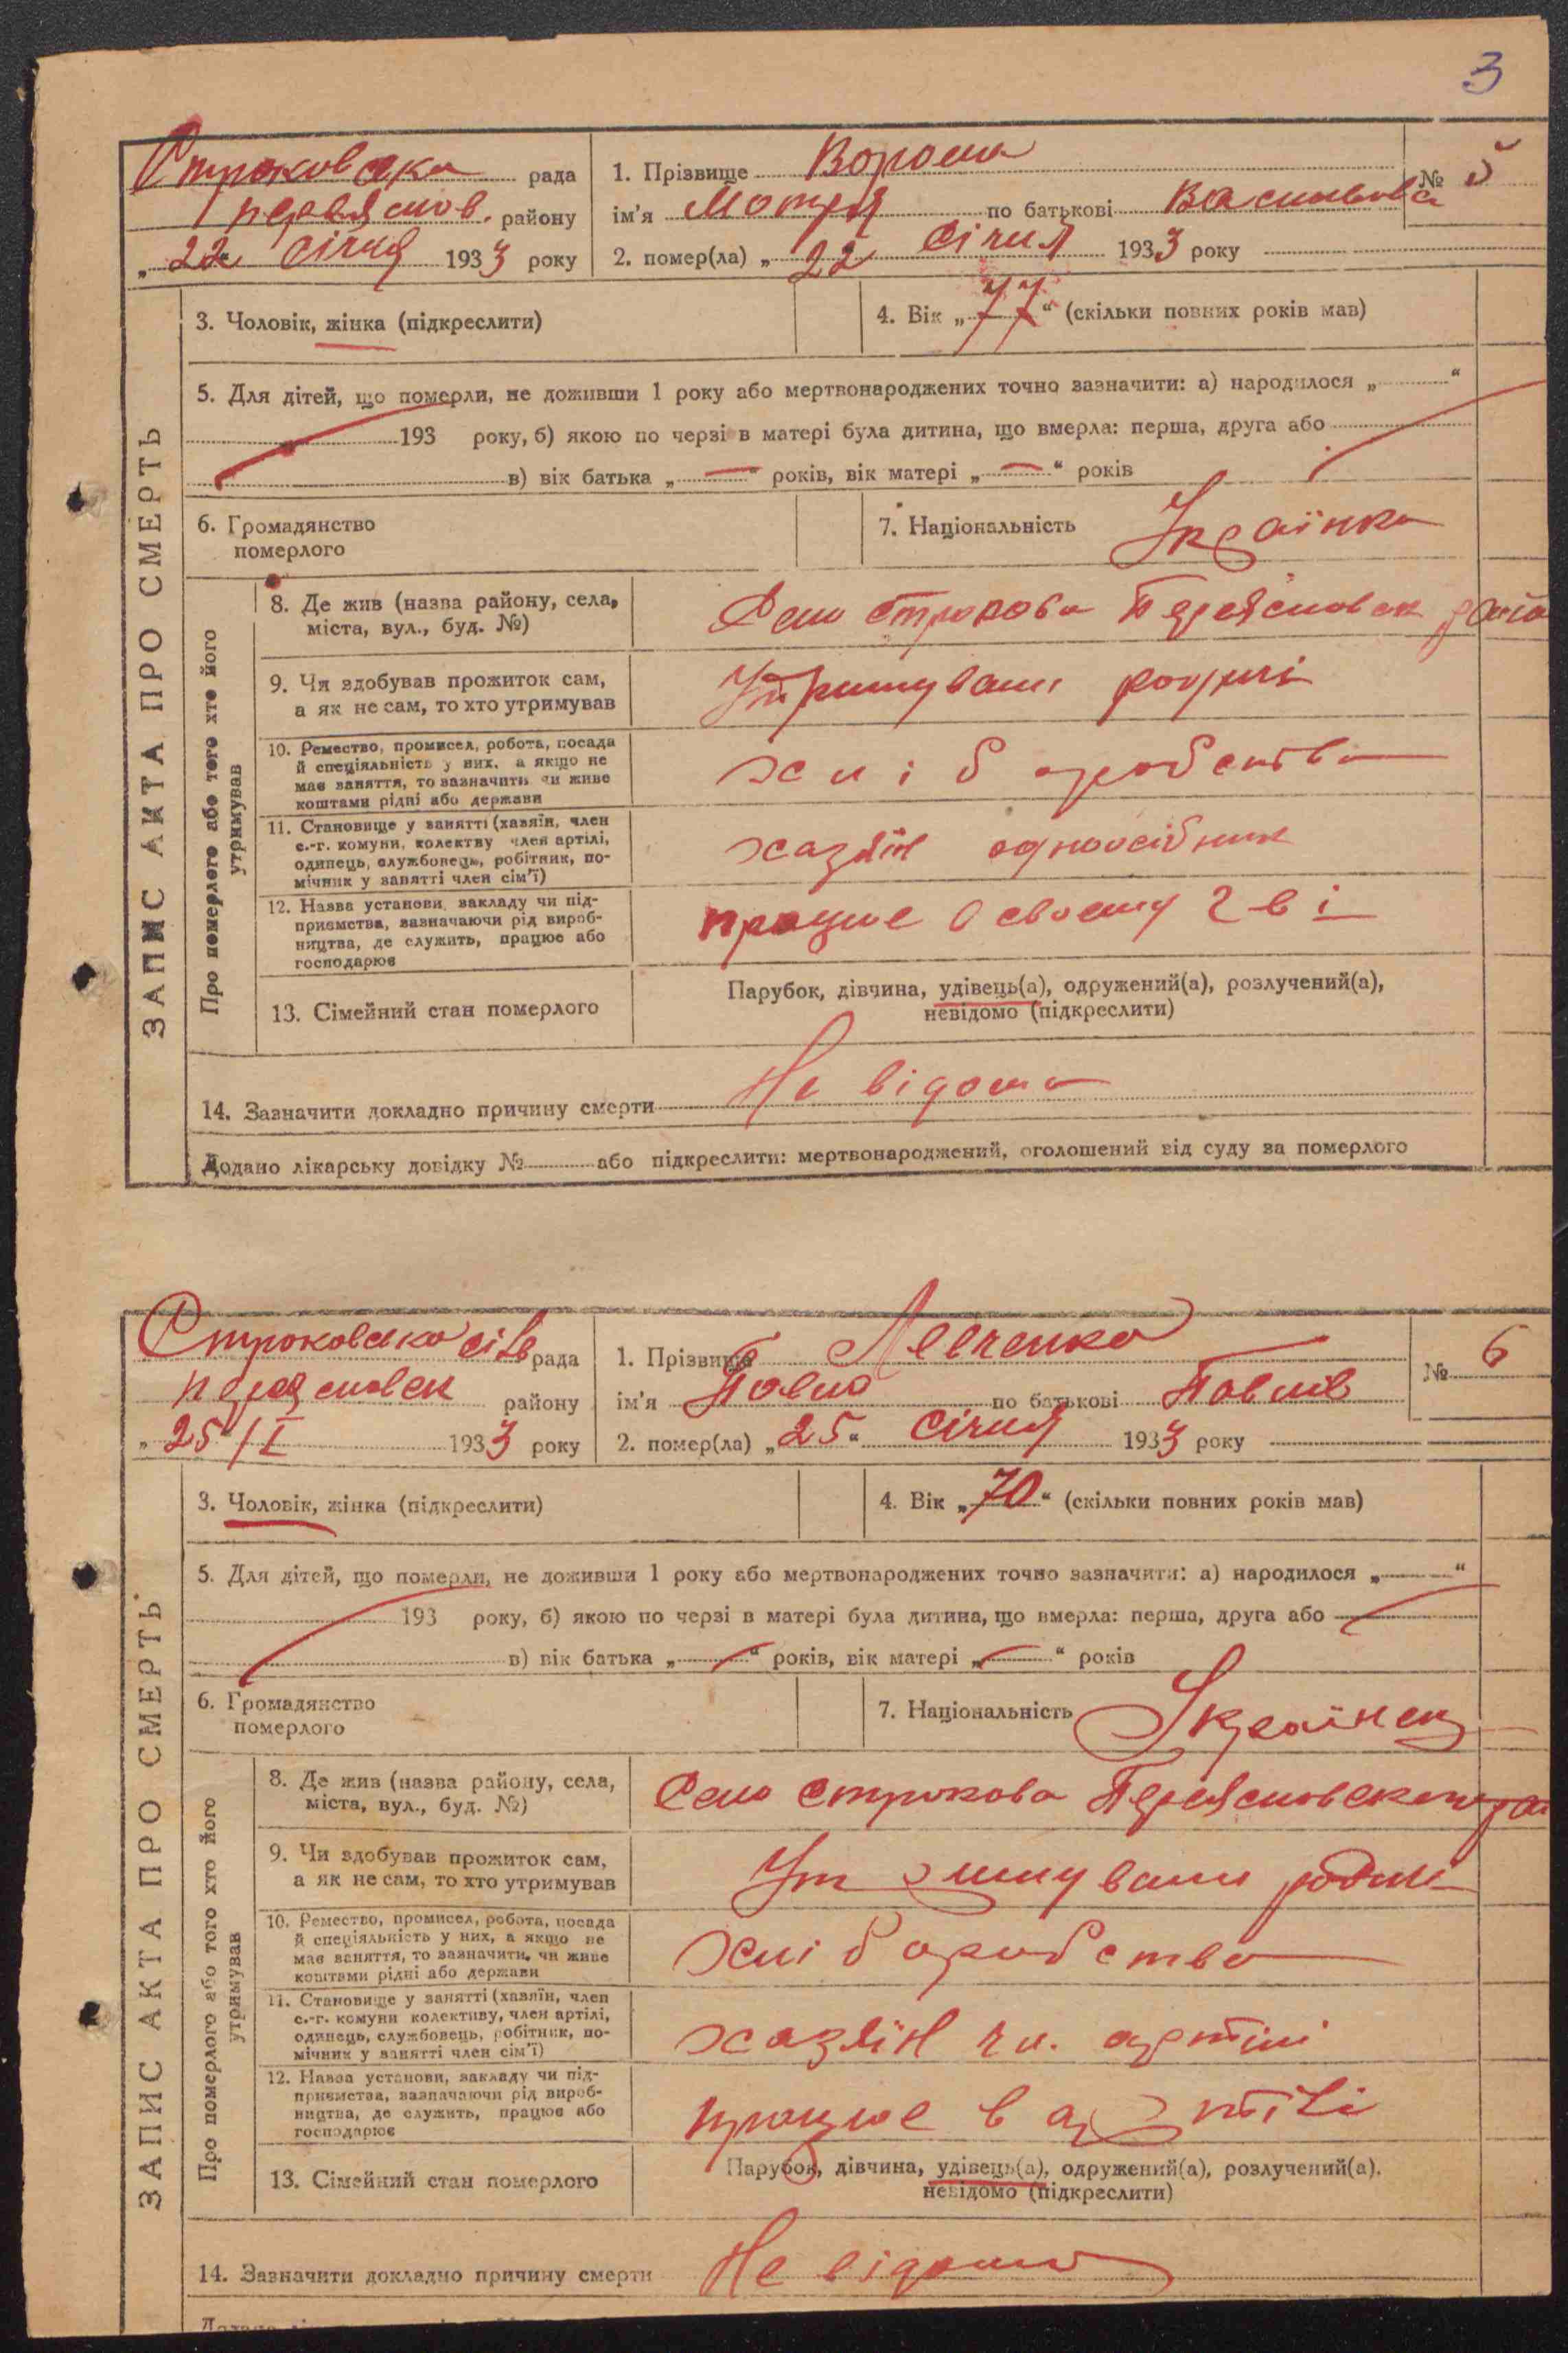 3
Строковска рада
Переяслов. району
„ 22 січня 1933 року
1. Прізвище Ворона
№ 5
ім'я Мотря по батькові Васильовна
2. помер(ла) „ 22 січня 1933 року
ЗАПИС АКТА ПРО СМЕРТЬ
3. Чоловік, жінка (підкреслити)
4. Вік „ 77 “ (скільки повних років мав)
5. Для дітей, що померли, не доживши 1 року або мертвонароджених точно зазначити: а) народилося „ “
193 року, б) якою по черзі в матері була дитина, що вмерла: перша, друга або
в) вік батька „ — “ років, вік матері „ — “ років
6. Громадянство
померлого
7. Національність Українка
Про померлого або того хто його
утримував
8. Де жив (назва району, села,
міста, вул., буд. №)
Село Строкова Переясловск
9. Чи здобував прожиток сам,
а як не сам, то хто утримував
Утримували
10. Ремество, промисел, робота, посада
й спеціяльність у них, а якщо не
має заняття, то зазначити чи живе
коштами рідні або держави
хліборобство
11. Становище у занятті (хазяїн, член
с.-г. комуни, колективу член артілі,
одинець, службовець, робітник, по-
мічник у занятті член сім'ї)
хазяїн одноосібник
12. Назва установи, закладу чи під-
приємства, зазначаючи рід вироб-
ництва, де служить, працює або
господарює
працює в своему г-ві
13. Сімейний стан померлого
Парубок, дівчина, удівець(а), одружений(а), розлучений(а),
невідомо (підкреслити)
14. Зазначити докладно причину смерти Не відома
Додано лікарську довідку № або підкреслити: мертвонароджений, оголошений від суду за померлого
Строковска сілв рада
Переясловск району
„ 25/I 1933 року
1. Прізвище Левченко
№ 6
ім'я Павло по батькові Павлів
2. помер(ла) „ 25 “ січня 1933 року
ЗАПИС АКТА ПРО СМЕРТЬ
3. Чоловік, жінка (підкреслити)
4. Вік „ 70 “ (скільки повних років мав)
5. Для дітей, що померли, не доживши 1 року або мертвонароджених точно зазначити: а) народилося „ “
193 року, б) якою по черзі в матері була дитина, що вмерла: перша, друга або
в) вік батька „ — “ років, вік матері „ — “ років
6. Громадянство
померлого
7. Національність Українец
Про померлого або того хто його
утримував
8. Де жив (назва району, села,
міста, вул., буд. №)
Село Строкова Переясловского
9. Чи здобував прожиток сам,
а як не сам, то хто утримував
Утримували родичі
10. Ремество, промисел, робота, посада
й спеціяльність у них, а якщо не
має заняття, то зазначити, чи живе
коштами рідні або держави
хліборобство
11. Становище у занятті (хазяїн, член
с.-г. комуни колективу, член артілі,
одинець, службовець, робітник, по-
мічник у занятті член сім'ї)
хазяїн чл. артілі
12. Назва установи, закладу чи під-
приємства, зазначаючи рід вироб-
ництва, де служить, працює або
господарює
працює в артілі
13. Сімейний стан померлого
Парубок, дівчина, удівець(а), одружений(а), розлучений(а).
невідомо (підкреслити)
14. Зазначити докладно причину смерти Не відома